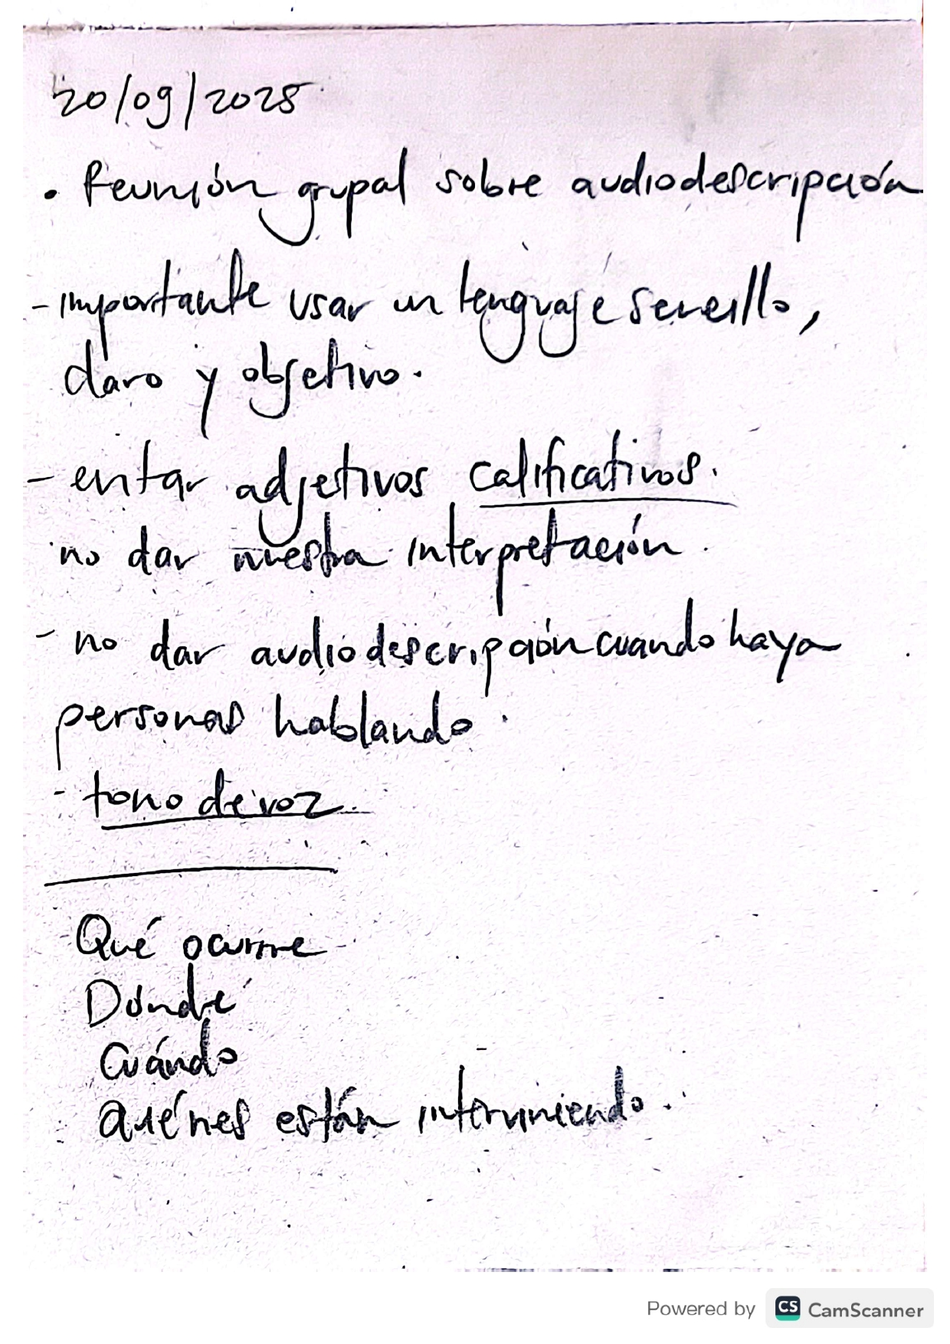 20/09/2025
• Reunión grupal sobre audiodescripción
- importante usar un lenguaje sencillo,
claro y objetivo.
- evitar adjetivos calificativos.
no dar nuestra interpretación.
- no dar audiodescripción cuando haya
personas hablando.
- tono de voz
Qué ocurre
Dónde
Cuándo
Quiénes están interviniendo.
Powered by CS CamScanner